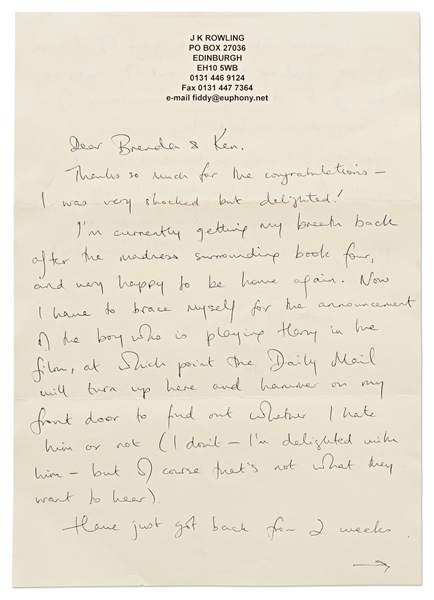 J K ROWLING
PO BOX 27036
EDINBURGH
EH10 5WB
0131 446 9124
Fax 0131 447 7364
e-mail fiddy@euphony.net
Dear Brenda & Ken,
Thanks so much for the congratulations –
I was very shocked but delighted!
I'm currently getting my breath back
after the madness surrounding book four,
and very happy to be home again. Now
I have to brace myself for the announcement
of the boy who is playing Harry in the
film, at which point the Daily Mail
will turn up here and hammer on my
front door to find out whether I hate
him or not (I don't – I'm delighted with
him – but of course that's not what they
want to hear).
Have just got back from 2 weeks
→